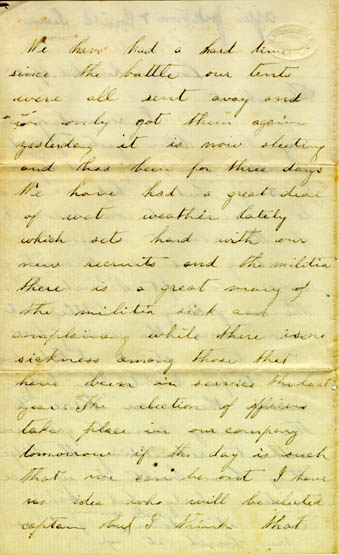 We have had a hard time
since the battle our tents
were all sent away and
we only got them again
yesterday it is now sleeting
and has been for three days
We have had a great deal
of wet weather lately
which sets hard with our
new recruits and the militia
there is a great many of
the militia sick and
complaining while there is no
sickness among those that
have been in service the last
year The election of officers
take place in our company
tomorrow if the day is such
that we can be out I have
no idea who will be elected
captain but I think that